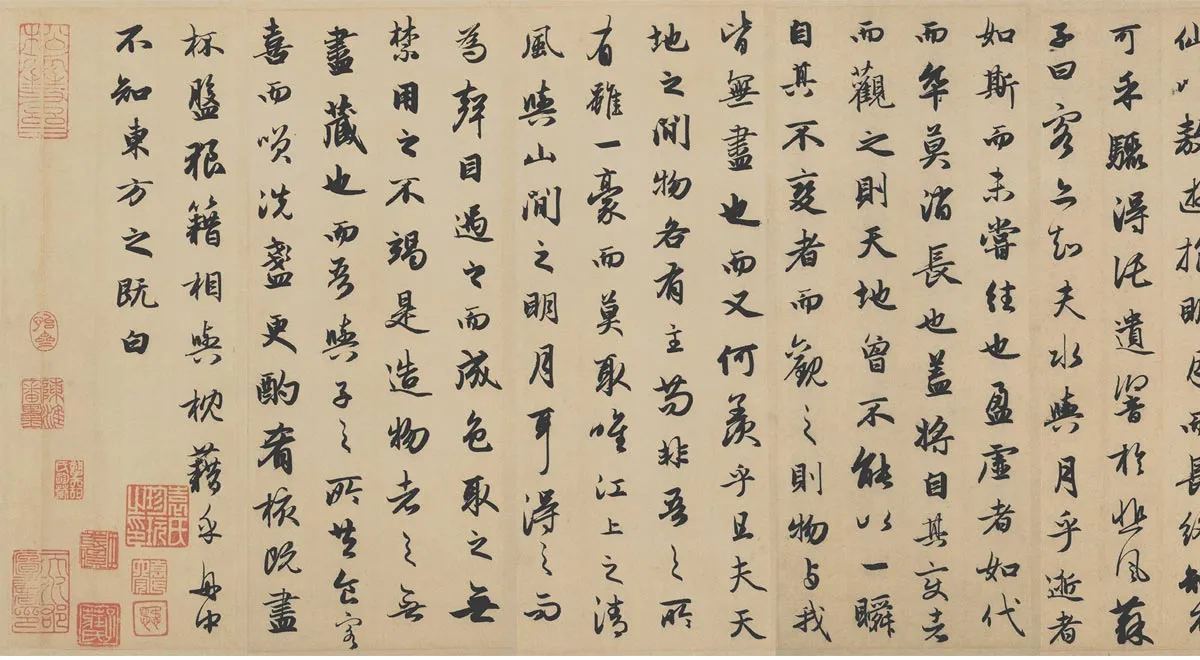 仙以敖遊抱明月而長終知不
可乎驟得託遺響於悲風蘇
子曰客亦知夫水與月乎逝者
如斯而未嘗往也盈虛者如代
而卒莫消長也蓋將自其變者
而觀之則天地曾不能以一瞬
自其不變者而觀之則物与我
皆無盡也而又何羨乎且夫天
地之間物各有主苟非吾之所
有雖一豪而莫取唯江上之清
風與山間之明月耳得之而
為聲目遇之而成色取之無
禁用之不竭是造物者之無
盡藏也而吾與子之所共食客
喜而笑洗盞更酌肴核既盡
杯盤狼籍相與枕藉乎舟中
不知東方之既白